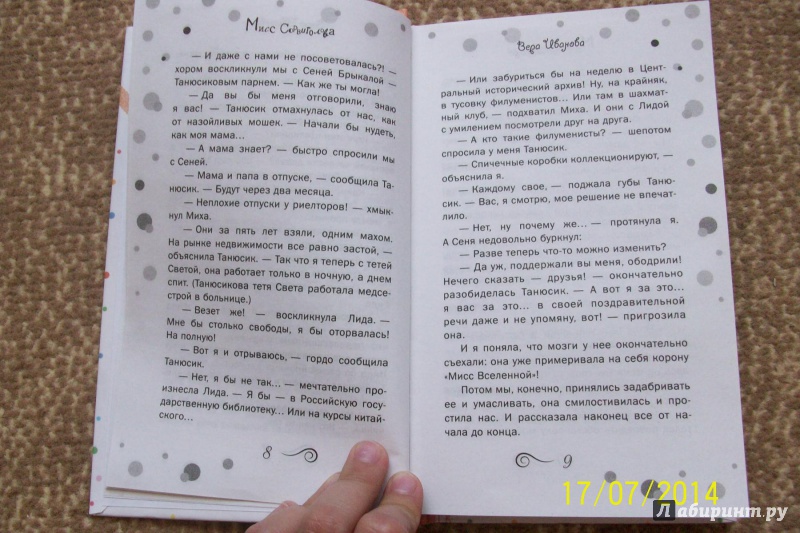 Мисс Сорвиголова
— И даже с нами не посоветовалась?! —
хором воскликнули мы с Сеней Брыкалой —
Танюсиковым парнем. — Как же ты могла!
— Да вы бы меня отговорили, знаю
я вас! — Танюсик отмахнулась от нас, как
от назойливых мошек. — Начали бы нудеть,
как моя мама...
— А мама знает? — быстро спросили мы
с Сеней.
— Мама и папа в отпуске, — сообщила Та-
нюсик. — Будут через два месяца.
— Неплохие отпуски у риелторов! — хмык-
нул Миха.
— Они за пять лет взяли, одним махом.
На рынке недвижимости все равно застой, —
объяснила Танюсик. — Так что я теперь с тетей
Светой, она работает только в ночную, а днем
спит. (Танюсикова тетя Света работала медсе-
строй в больнице.)
— Везет же! — воскликнула Лида. —
Мне бы столько свободы, я бы оторвалась!
На полную!
— Вот я и отрываюсь, — гордо сообщила
Танюсик.
— Нет, я бы не так... — мечтательно про-
изнесла Лида. — Я бы — в Российскую госу-
дарственную библиотеку... Или на курсы китай-
ского...
8
Вера Иванова
— Или забуриться бы на неделю в Цент-
ральный исторический архив! Ну, на крайняк,
в тусовку филуменистов... Или там в шахмат-
ный клуб, — подхватил Миха. И они с Лидой
с умилением посмотрели друг на друга.
— А кто такие филуменисты? — шепотом
спросила у меня Танюсик.
— Спичечные коробки коллекционируют, —
объяснила я.
— Каждому свое, — поджала губы Таню-
сик. — Вас, я смотрю, мое решение не впечат-
лило.
— Нет, ну почему же... — протянула я.
А Сеня недовольно буркнул:
— Разве теперь что-то можно изменить?
— Да уж, поддержали вы меня, ободрили!
Нечего сказать — друзья! — окончательно
разобиделась Танюсик. — А вот я за это...
я вас за это... в своей поздравительной
речи даже и не упомяну, вот! — пригрозила
она.
И я поняла, что мозги у нее окончательно
съехали: она уже примеривала на себя корону
«Мисс Вселенной»!
Потом мы, конечно, принялись задабривать
ее и умасливать, она смилостивилась и про-
стила нас. И рассказала наконец все от на-
чала до конца.
9
17/07/2014
Лабиринт.ру